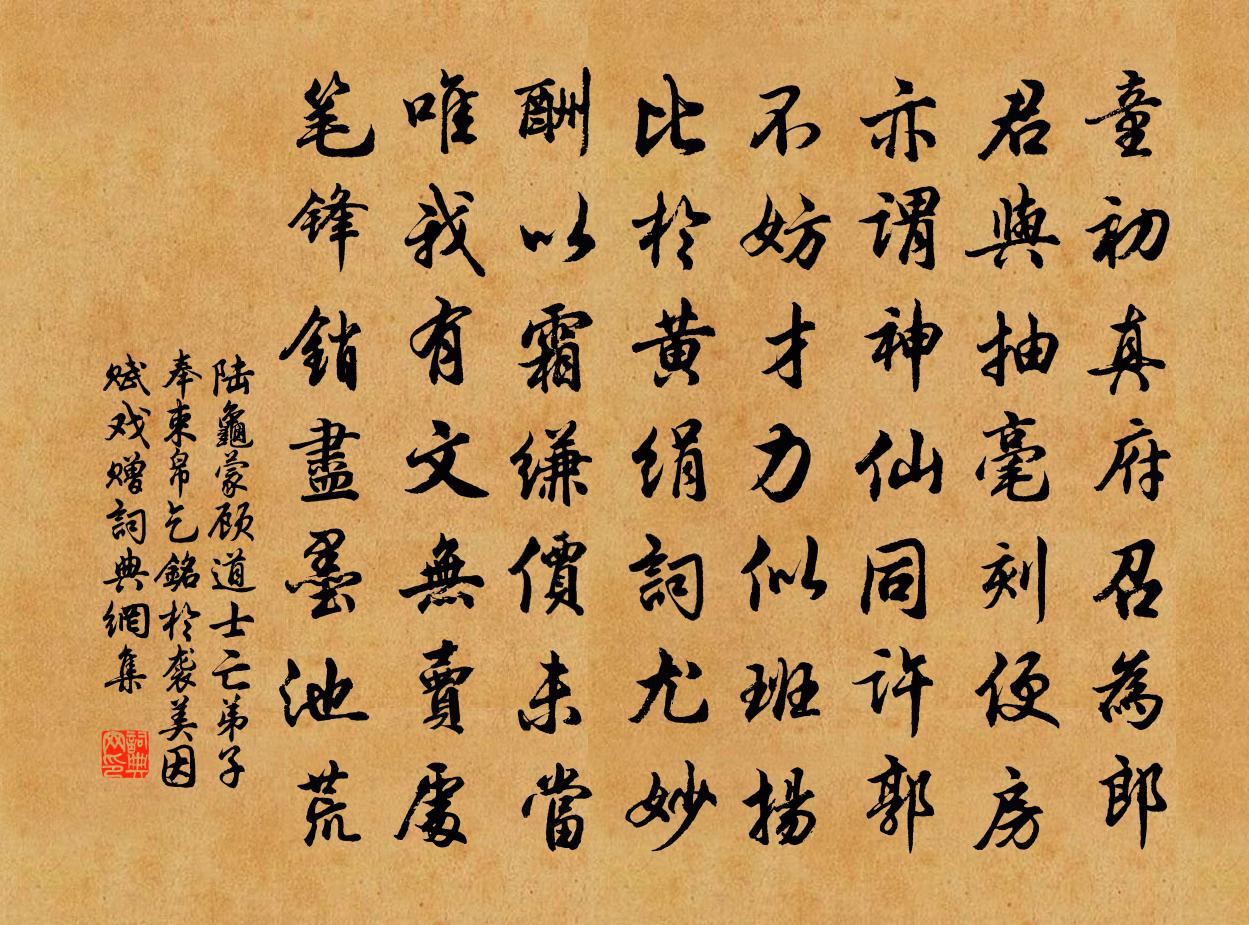 童初真府召為郎
君與抽毫刻便房
亦謂神仙同許郭
不妨才力似班揚
比於黄絹詞尤妙
酬以霜縑價未當
唯我有文無賣處
笔锋銷盡墨池荒
陆龜蒙顾道士亡弟子
奉束帛乞銘於袭美因
赋戏赠詞典網集
詞典網印